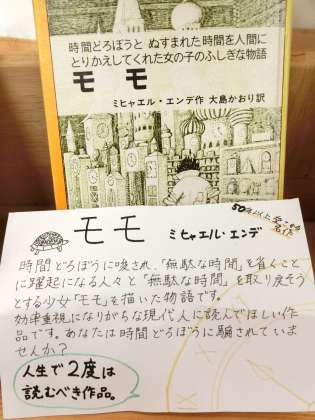 時間どろぼうと ぬすまれた時間を人間に
とりかえしてくれた女の子のふしぎな物語
モモ
ミヒャエル・エンデ作 大島かおり訳
モモ
ミヒャエル・エンデ
時間どろぼうに唆され、「無駄な時間」を省くこと
に躍起になる人々と「無駄な時間」を取り戻そう
とする少女「モモ」を描いた物語です。
効率重視になりがちな現代人に読んでほしい作
品です。あなたは時間どろぼうに騙されていま
せんか?
人生で2度は
読むべき作品。